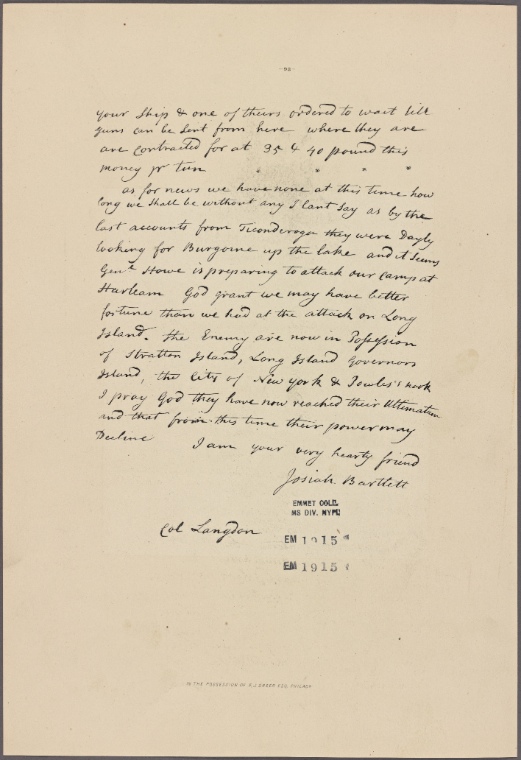 92
your Ship & one of theirs ordered to wait till
guns can be sent from here where they are
are contracted for at 35 & 40 pound this
money pr tun * * * *
as for news we have none at this time how
long we shall be without any I cant say as by the
last accounts from Ticonderoga they were Dayly
looking for Burgoine up the lake and it seems
Genll Howe is preparing to attack our Camp at
Harleam God grant we may have better
fortune than we had at the attack on Long
Island. the Enemy are now in Possession
of Stratten Island, Long Island Governors
Island, the City of New York & Powles's Hook
I pray God they have now reached their Ultimatum
and that from this time their power may
Decline I am your very hearty friend
Josiah Bartlett
EMMET COLL.
MS DIV. NYPL
Col Langdon
EM 1915
EM 1915
IN THE POSSESSION OF F. J. DREER ESQ.